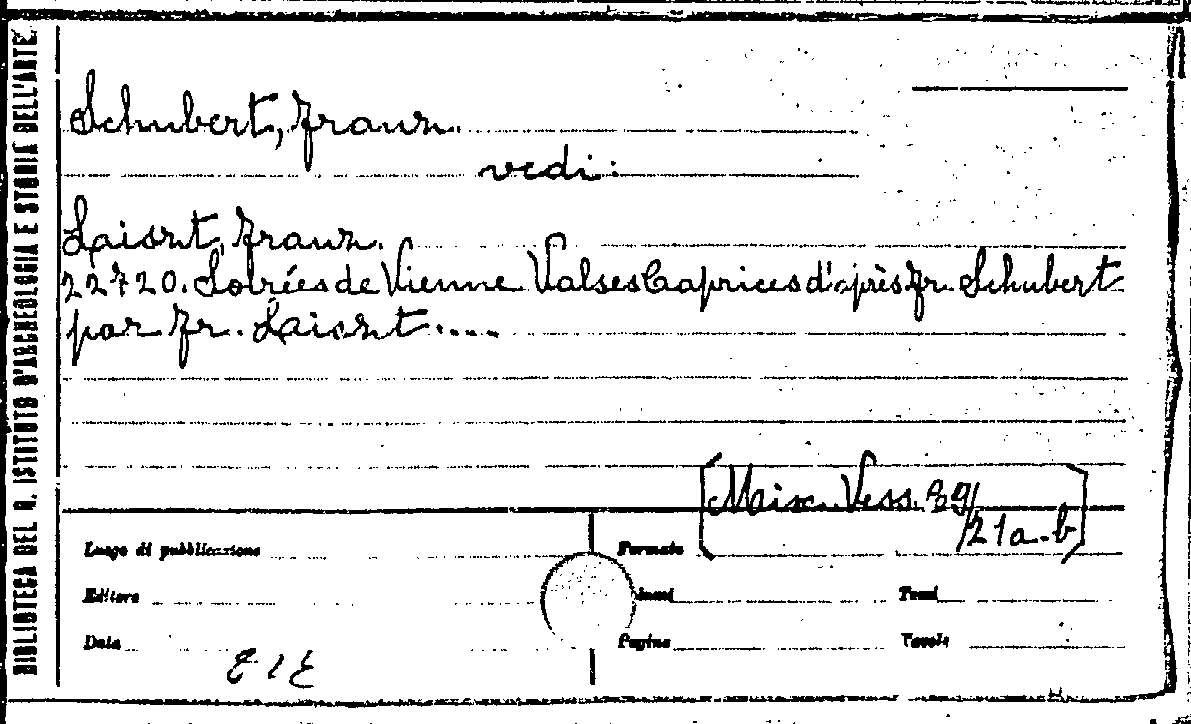 BIBLIOTECA DEL R. ISTITUTO D'ARCHEOLOGIA E STORIA DELL'ARTE
Schubert, Franz.
vedi:
Laiszt, Franz.
22720. Soirées de Vienne Valses Caprices d'après Fr. Schubert
par Fr. Laiszt....
[Misc. Vess. 89/
21a-b]
Luogo di pubblicazione
Formato
Editore
Tomi
Data
Pagine
Tavole